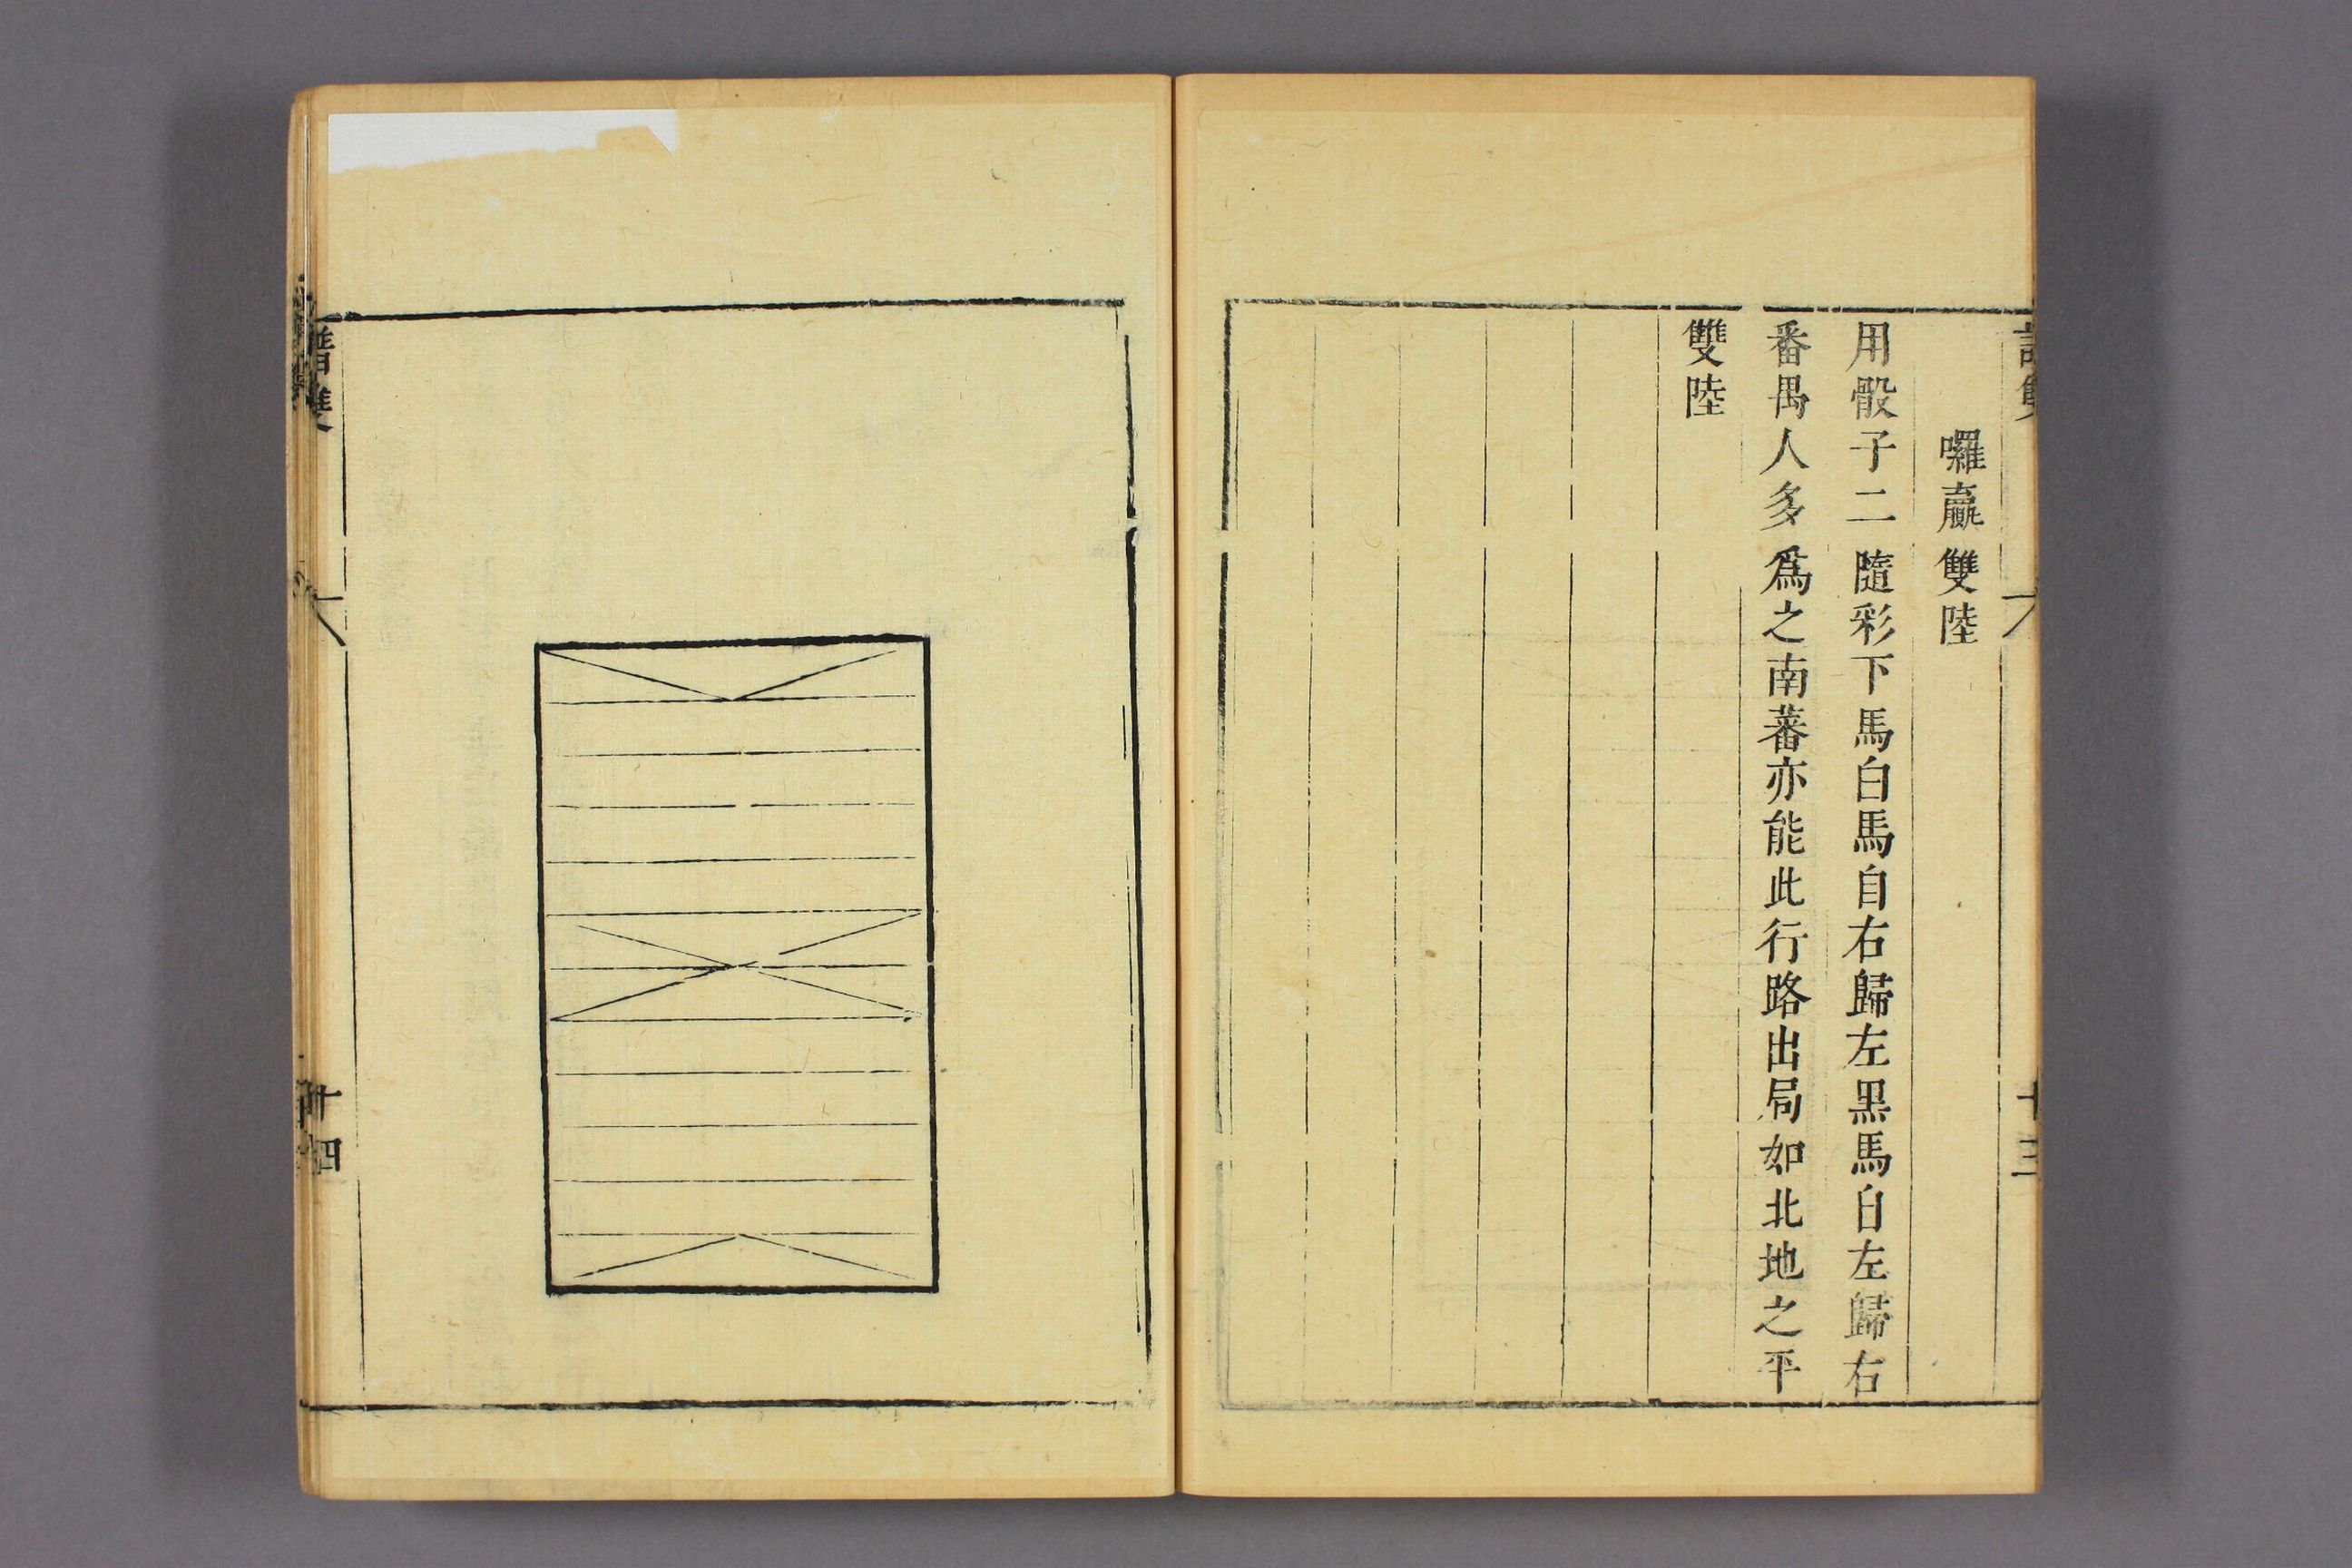 囉贏雙陸
用骰子二隨彩下馬白馬自右歸左黑馬白左歸右
番禺人多爲之南蕃亦能此行路出局如北地之平
雙陸
十四